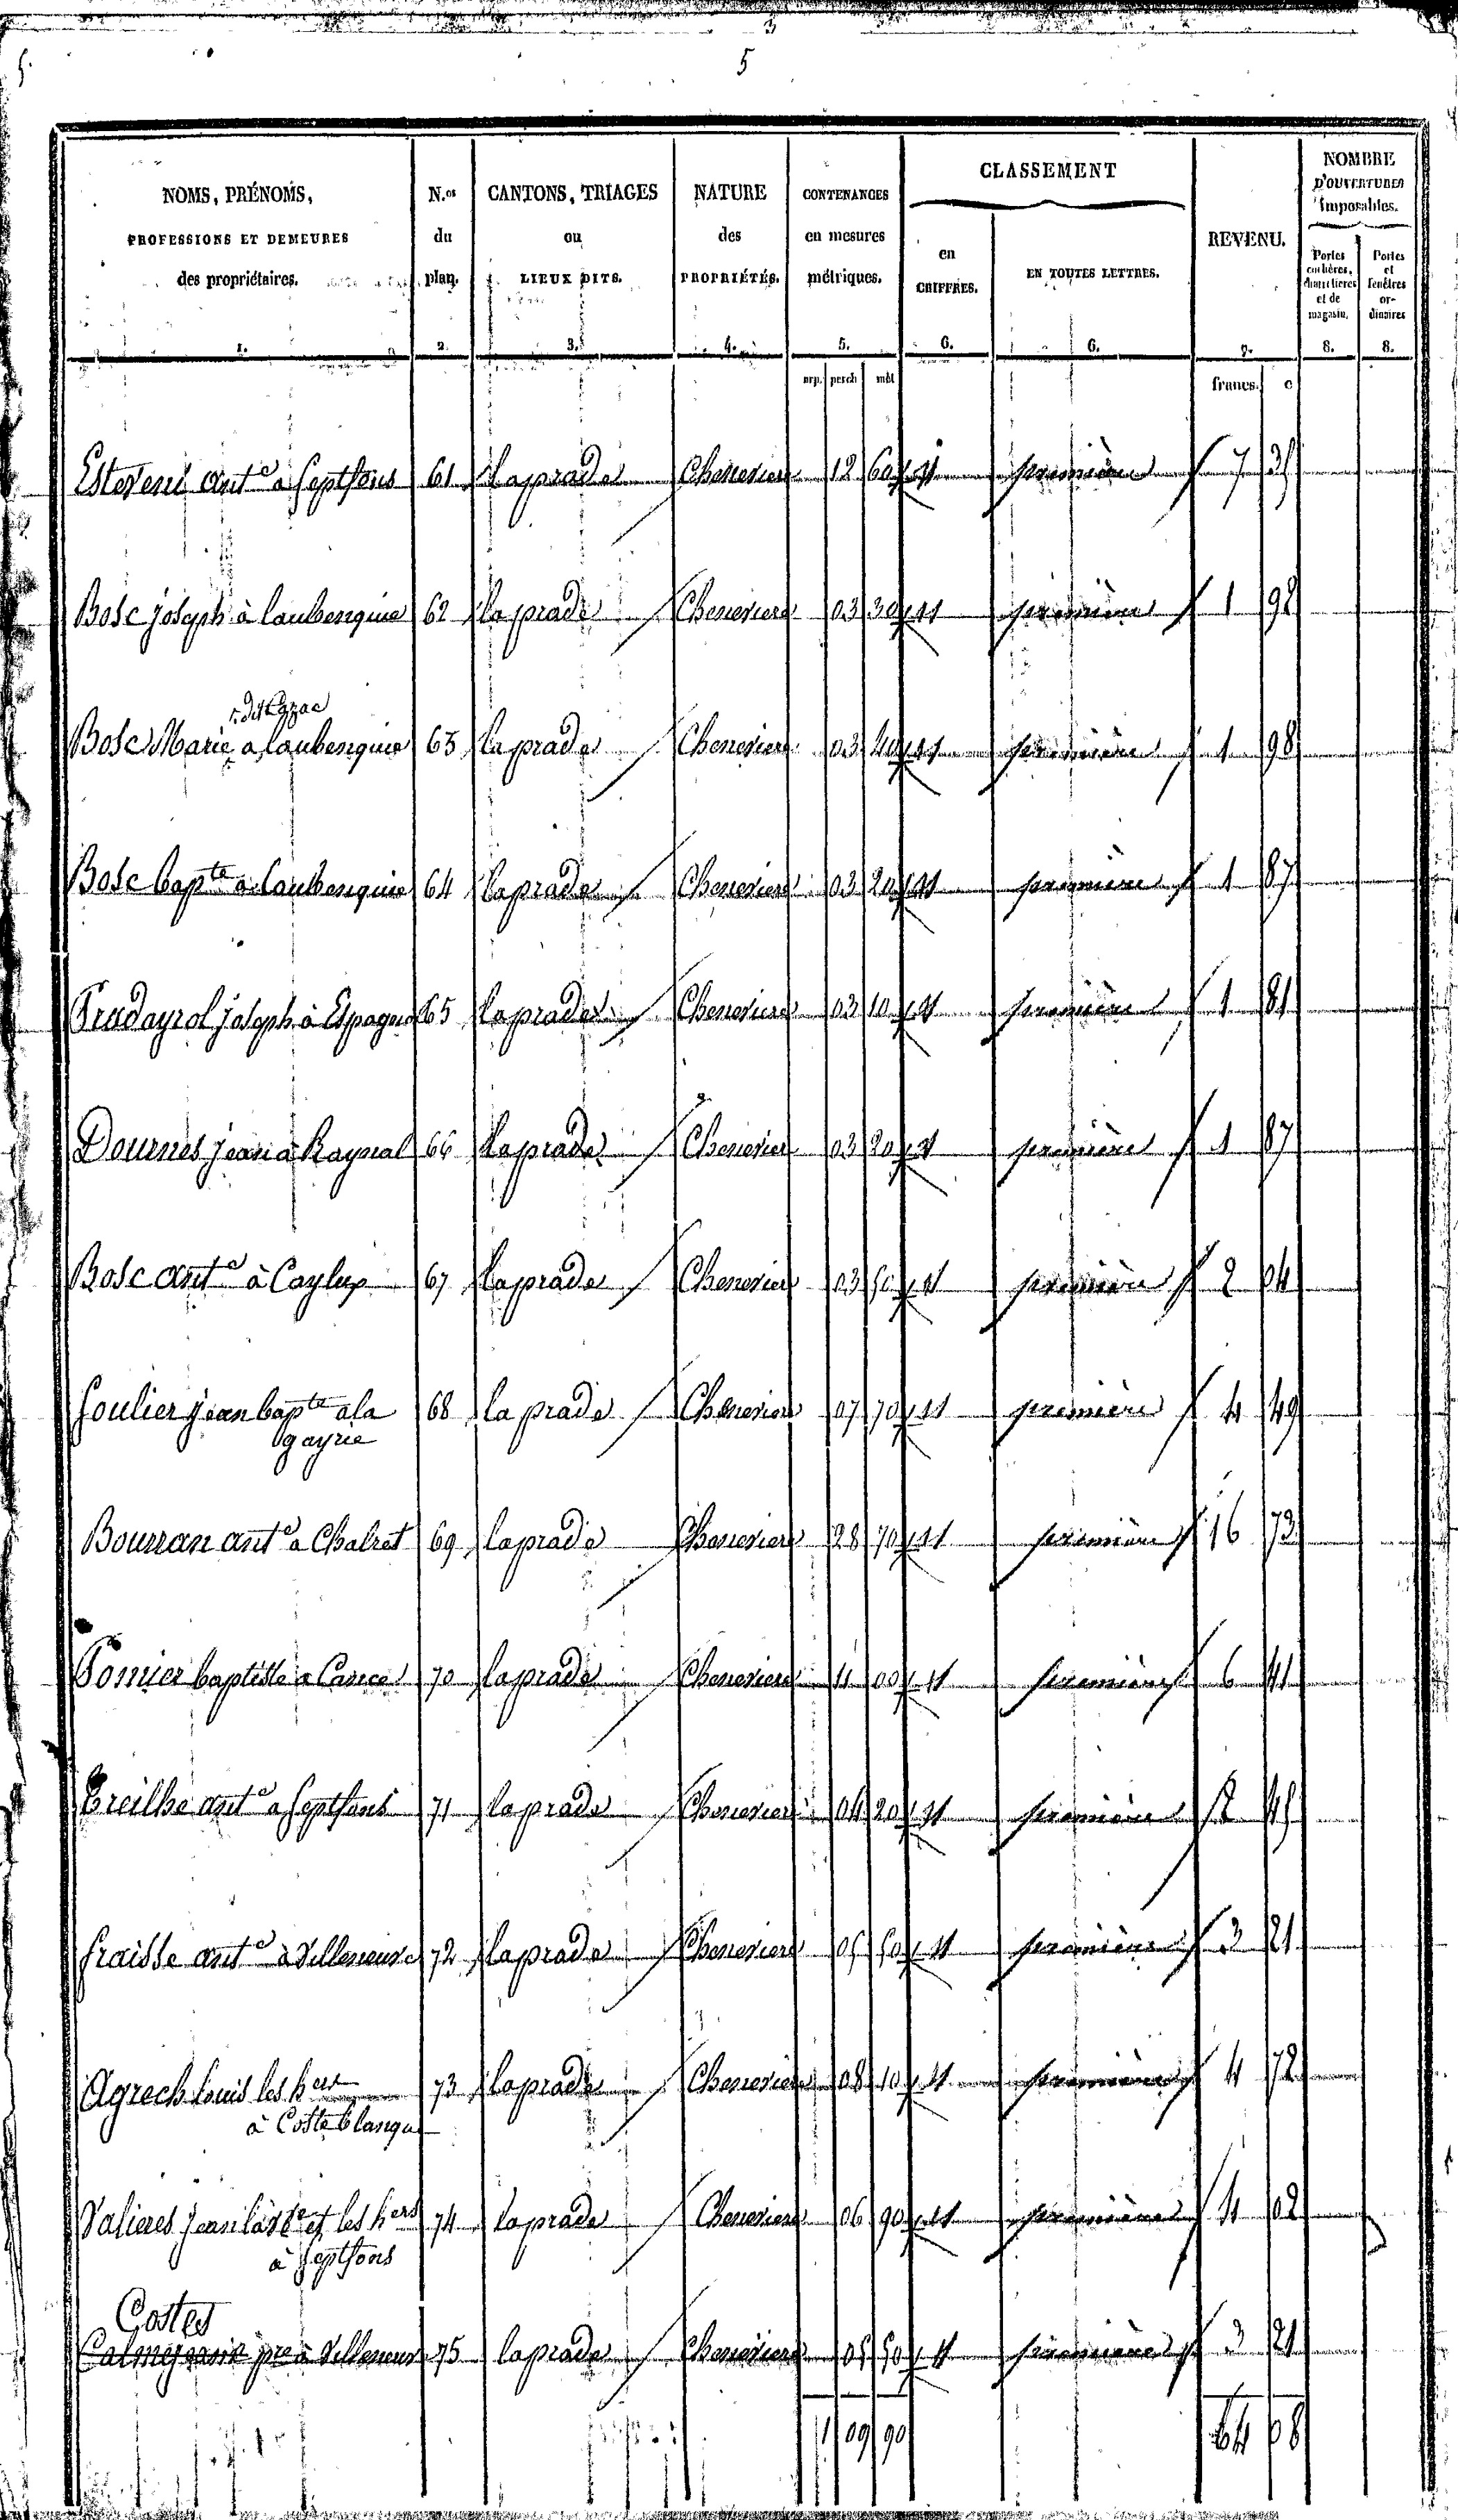 5
5
NOMS, PRÉNOMS, PROFESSIONS ET DEMEURES des propriétaires. 1.
N.os du plan. 2.
CANTONS, TRIAGES ou LIEUX DITS. 3.
NATURE des PROPRIÉTÉS. 4.
CONTENANCES en mesures métriques. 5.
CLASSEMENT
en CHIFFRES. 6.
EN TOUTES LETTRES. 6.
REVENU. 7.
NOMBRE D'OUVERTURES imposables.
Portes cochères, charretières et de magasin. 8.
Portes et fenêtres ordinaires 8.
arp. perch mèt francs. c
ant.e a Septfons 61 Laprade Cheneviere 12 60 1 première 7 35
Bosc joseph à laubenquie 62 la prade Cheneviere 03 1 première 1 98
dit
Bosc Marie a laubenquie 63 la prade Cheneviere 03 40 1 première 1 98
Bosc bapte a laubenquie 64 la prade Cheneviere 03 20 1 première 1 87
Pradayrol joseph à 65 la prade Cheneviere 03 10 1 première 1 81
Dournes jean à Raynal 66 La prade Cheneviere 03 20 1 première 1 87
Bosc ant.e à Caylus 67 la prade Cheneviere 03 50 1 première 2 04
Soulier jean bapte a la 68 la prade Cheneviere 07 70 1 première 4 49
gayrie
Bourran ant.e a Chalret 69 la prade Cheneviere 28 70 1 première 16 73
baptiste a 70 la prade Cheneviere 11 00 1 première 6 41
Treilhe ant.e a Septfons 71 la prade Cheneviere 04 20 1 première 2 45
fraisse ant.e à Villeneuve 72 la prade Cheneviere 05 50 1 première 3 21
Agrech Louis les hers 73 la prade Cheneviere 08 10 1 première 4 72
à Coste blanque
Valieres jean les hers 74 la prade Cheneviere 06 90 1 première 4 02
à Septfons
Costes
à Villeneuve 75 la prade Cheneviere 05 50 1 première 3 21
1 09 90 64 68